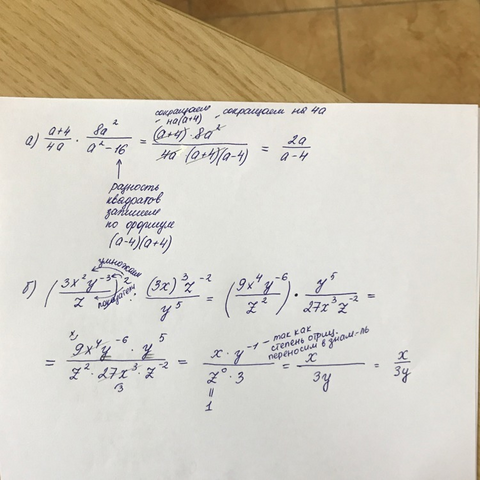 сокращаем
на (a+4)
сокращаем на 4a
а) \frac{a+4}{4a} · \frac{8a^2}{a^2-16} = \frac{(a+4)·8a^2}{4a (a+4)(a-4)} = \frac{2a}{a-4}
разность
квадратов
запишем
по формуле
(a-4)(a+4)
умножаем
б) (\frac{3x^2y^{-3}}{z})^2 : \frac{(3x)^3z^{-2}}{y^5} = (\frac{9x^4y^{-6}}{z^2}) · \frac{y^5}{27x^3z^{-2}} =
= \frac{9x^4y^{-6}·y^5}{z^2·27x^3·z^{-2}} = \frac{x·y^{-1}}{z^0·3} = \frac{x}{3y} = \frac{x}{3y}
x
3
– так как
степень отриц.
переносим в знам-ль
||
1